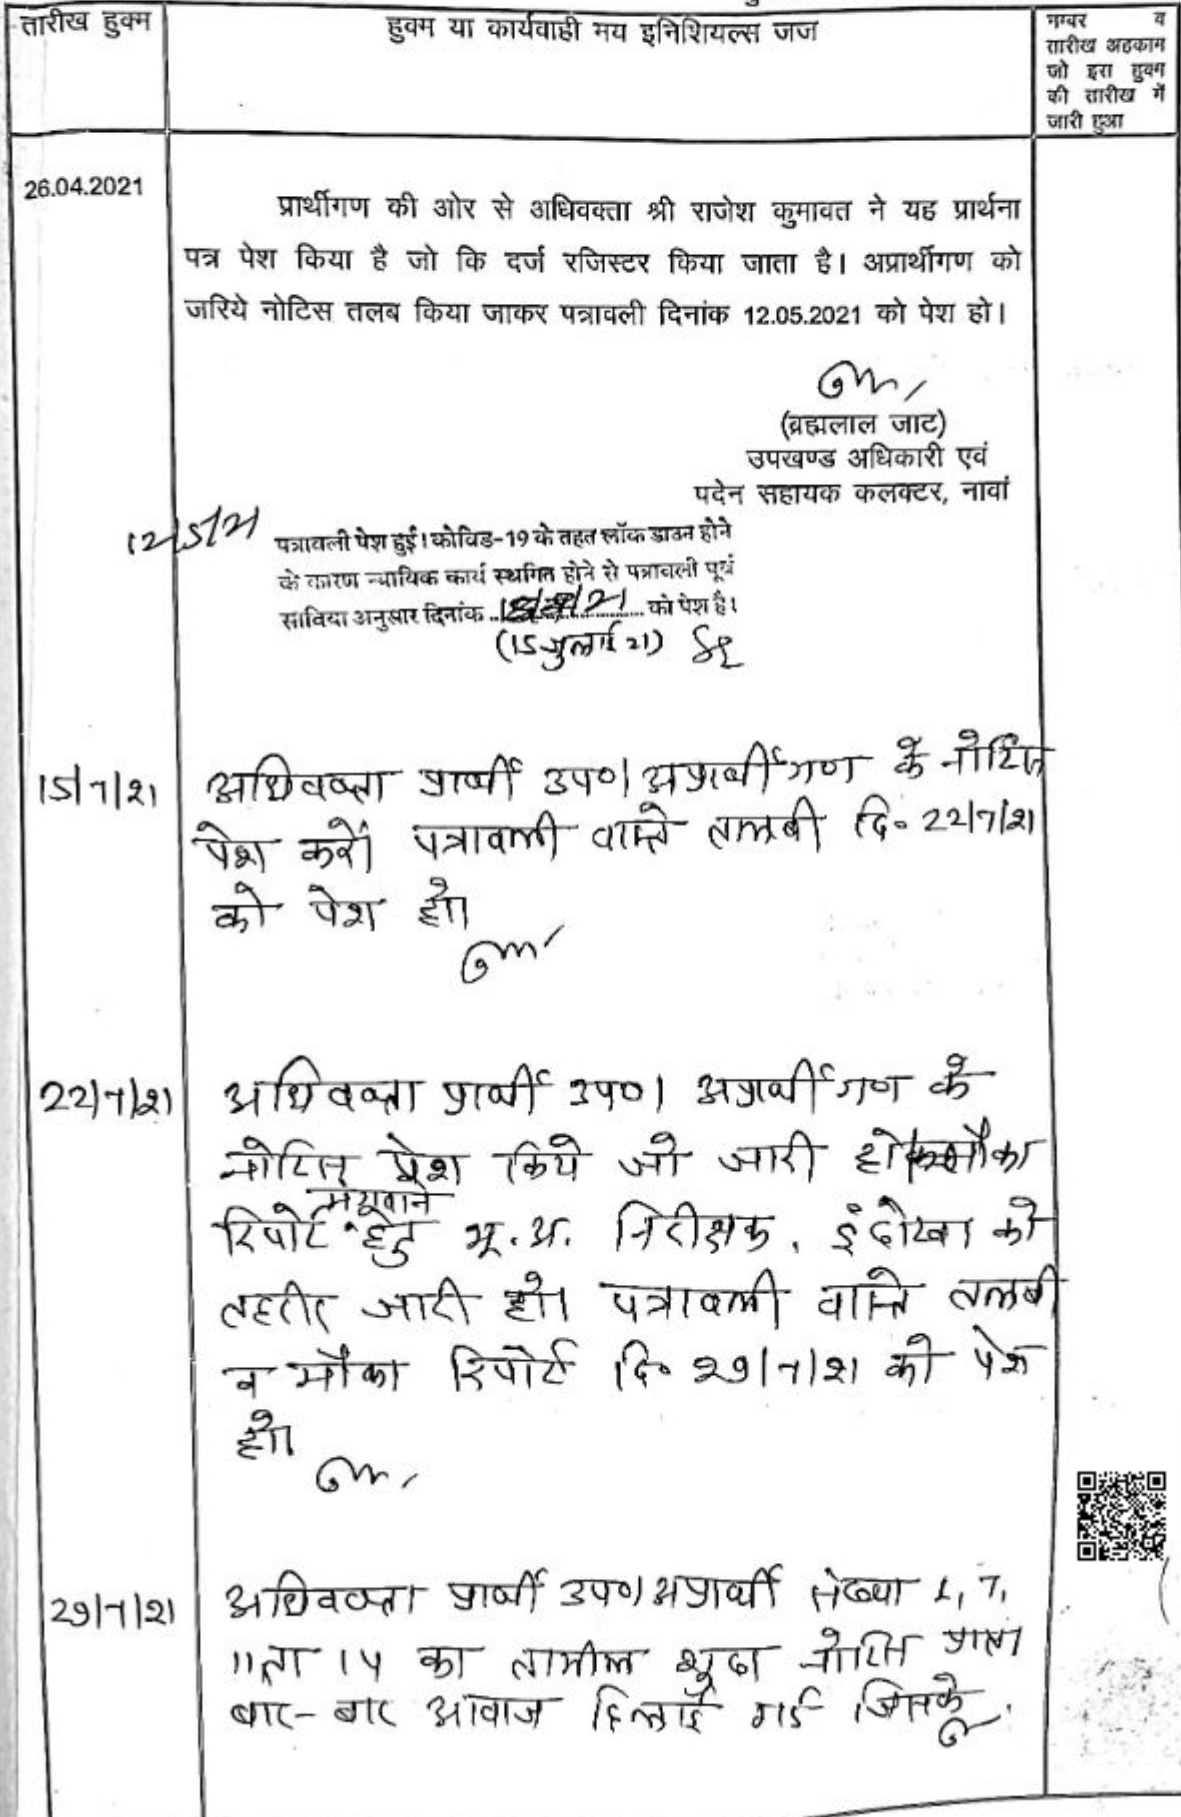 तारीख हुक्म
हुक्म या कार्यवाही मय इनिशियल्स जज
नम्बर व
तारीख अहकाम
जो इस हुक्म
की तारीख में
जारी हुआ
26.04.2021
प्रार्थीगण की ओर से अधिवक्ता श्री राजेश कुमावत ने यह प्रार्थना
पत्र पेश किया है जो कि दर्ज रजिस्टर किया जाता है। अप्रार्थीगण को
जरिये नोटिस तलब किया जाकर पत्रावली दिनांक 12.05.2021 को पेश हो।
(ब्रह्मलाल जाट)
उपखण्ड अधिकारी एवं
पदेन सहायक कलक्टर, नावां
12/5/21
पत्रावली पेश हुई। कोविड-19 के तहत लॉक डाउन होने
के कारण न्यायिक कार्य स्थगित होने से पत्रावली पूर्व
अनुसार दिनांक को पेश है।
(15 जुलाई 21)
15/7/21
अधिवक्ता प्रार्थी उप०। अप्रार्थीगण के नोटिस
पेश करें। पत्रावली वास्ते तलबी दि० 22/7/21
को पेश हो।
22/7/21
अधिवक्ता प्रार्थी उप०। अप्रार्थीगण के
नोटिस पेश किये जो जारी हो। मौका
रिपोर्ट मंगवाने हेतु भू.अ. निरीक्षक, इंदोखा को
तहरीर जारी हो। पत्रावली वास्ते तलबी
व मौका रिपोर्ट दि० 29/7/21 को पेश
हो।
29/7/21
अधिवक्ता प्रार्थी उप०। अप्रार्थी संख्या 1, 7,
11 ता 14 का तामील शुदा नोटिस प्राप्त
बार-बार आवाज दिलाई गई जिसके